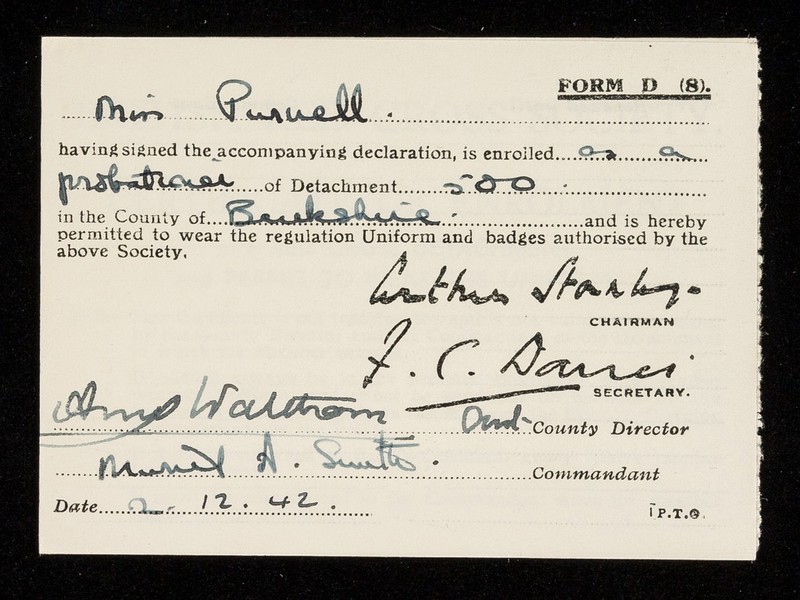 FORM D (8).
Miss Purnell.
having signed the accompanying declaration, is enrolled as a
probationer of Detachment 500.
in the County of Berkshire. and is hereby
permitted to wear the regulation Uniform and badges authorised by the
above Society.
Arthur Stanley.
CHAIRMAN
F. C. Davies
SECRETARY.
Waldram
County Director
Muriel A. Smith.
Commandant
Date 2. 12. 42.
P.T.O.